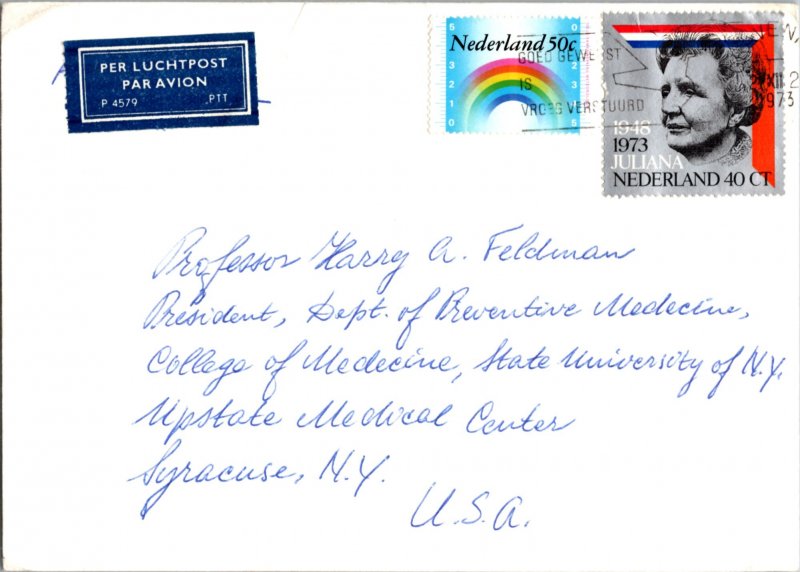 PER LUCHTPOST
PAR AVION
P 4579 PTT
Nederland 50c
GOED GEWEEST
IS
VROEG VERSTUURD
XII
1973
1948
1973
JULIANA
NEDERLAND 40 CT
Professor Harry A. Feldman
President, Dept. of Preventive Medecine,
College of Medecine, State University of N.Y.
Upstate Medical Center
Syracuse, N.Y.
U.S.A.